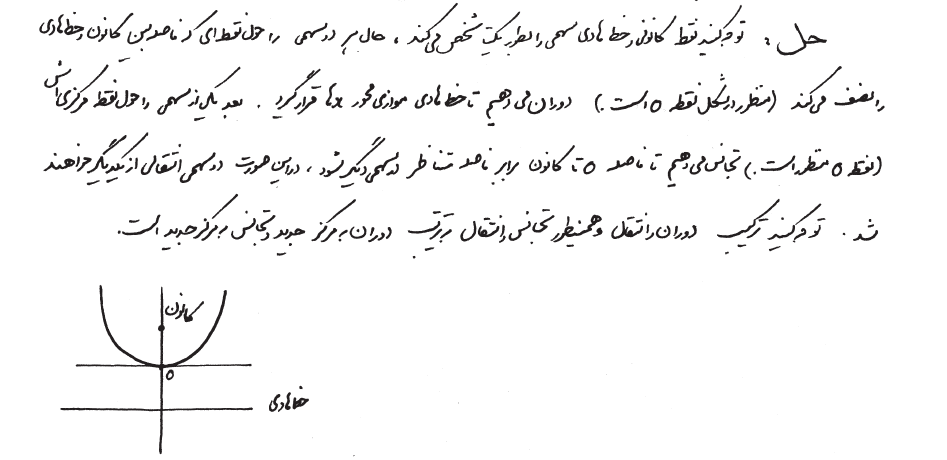 حل : توجه کنید نقطه کانونی و خط هادی سهمی را بطور یکتا مشخص می‌کند ، حال هر دو سهمی را حول نقطه‌ای که فاصله بین کانون و خط هادی
را نصف می‌کند (منظور در شکل نقطه O است.) دوران می‌دهیم تا خط هادی موازی محور xها قرار گیرد . بعد یکی از سهمی را حول نقطه مرکزی‌اش
(نقطه O منظور است.) تجانس می‌دهیم تا فاصله O تا کانون برابر فاصله متناظر در سهمی دیگر شود ، در این صورت دو سهمی انتقالی از یکدیگر خواهند
شد . توجه کنید ترکیب دوران و انتقال و همینطور تجانس و انتقال به ترتیب دوران به مرکز جدید و تجانس به مرکز جدید است.
کانون
O
خط هادی